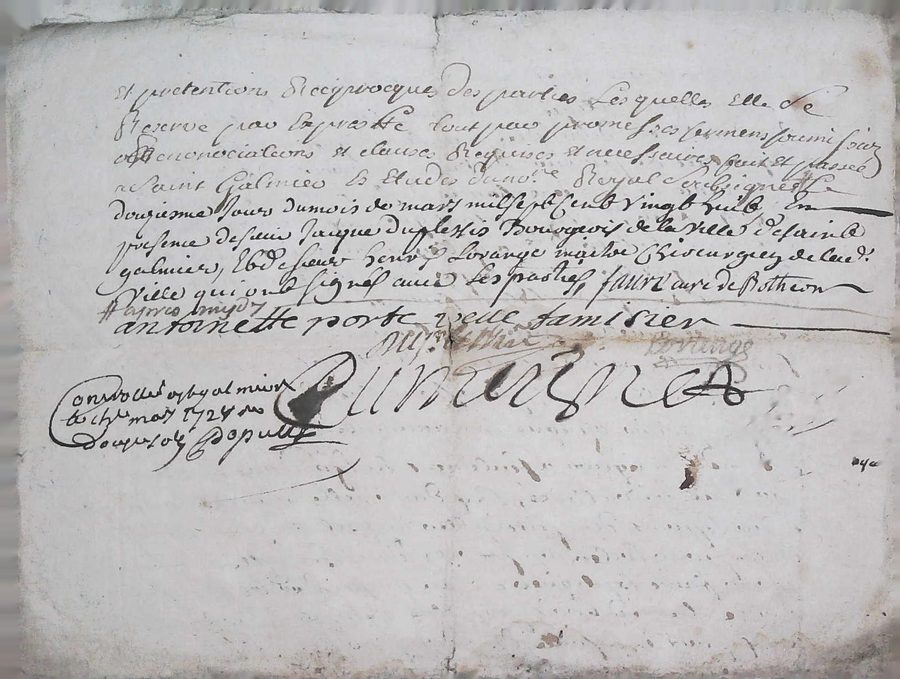 et pretentions Reciprocques des parties Lesquelles Elle se
Reserve par Expres Et tout par promesses sermens soumissions
Renonciations et clauses Requises et necessaires fait et passé
a Saint Galmier Es Etudes du no.re Royal Soubsigné Le
douziesme Jour du mois de mars mil sept Cent Vingt huit En
presence de sieur Jacque duplessis Bourgeois de la Ville de saint
galmier, Et de sieur henry Lorange maitre Chirurgien de lad.
Ville qui ont signés avec Les parties, faure curé de Botheon
# apres midy
antoinette porte veufe tamisier
Lorange
Controllé a St galmier
le mars 1728
douze sols Depuille